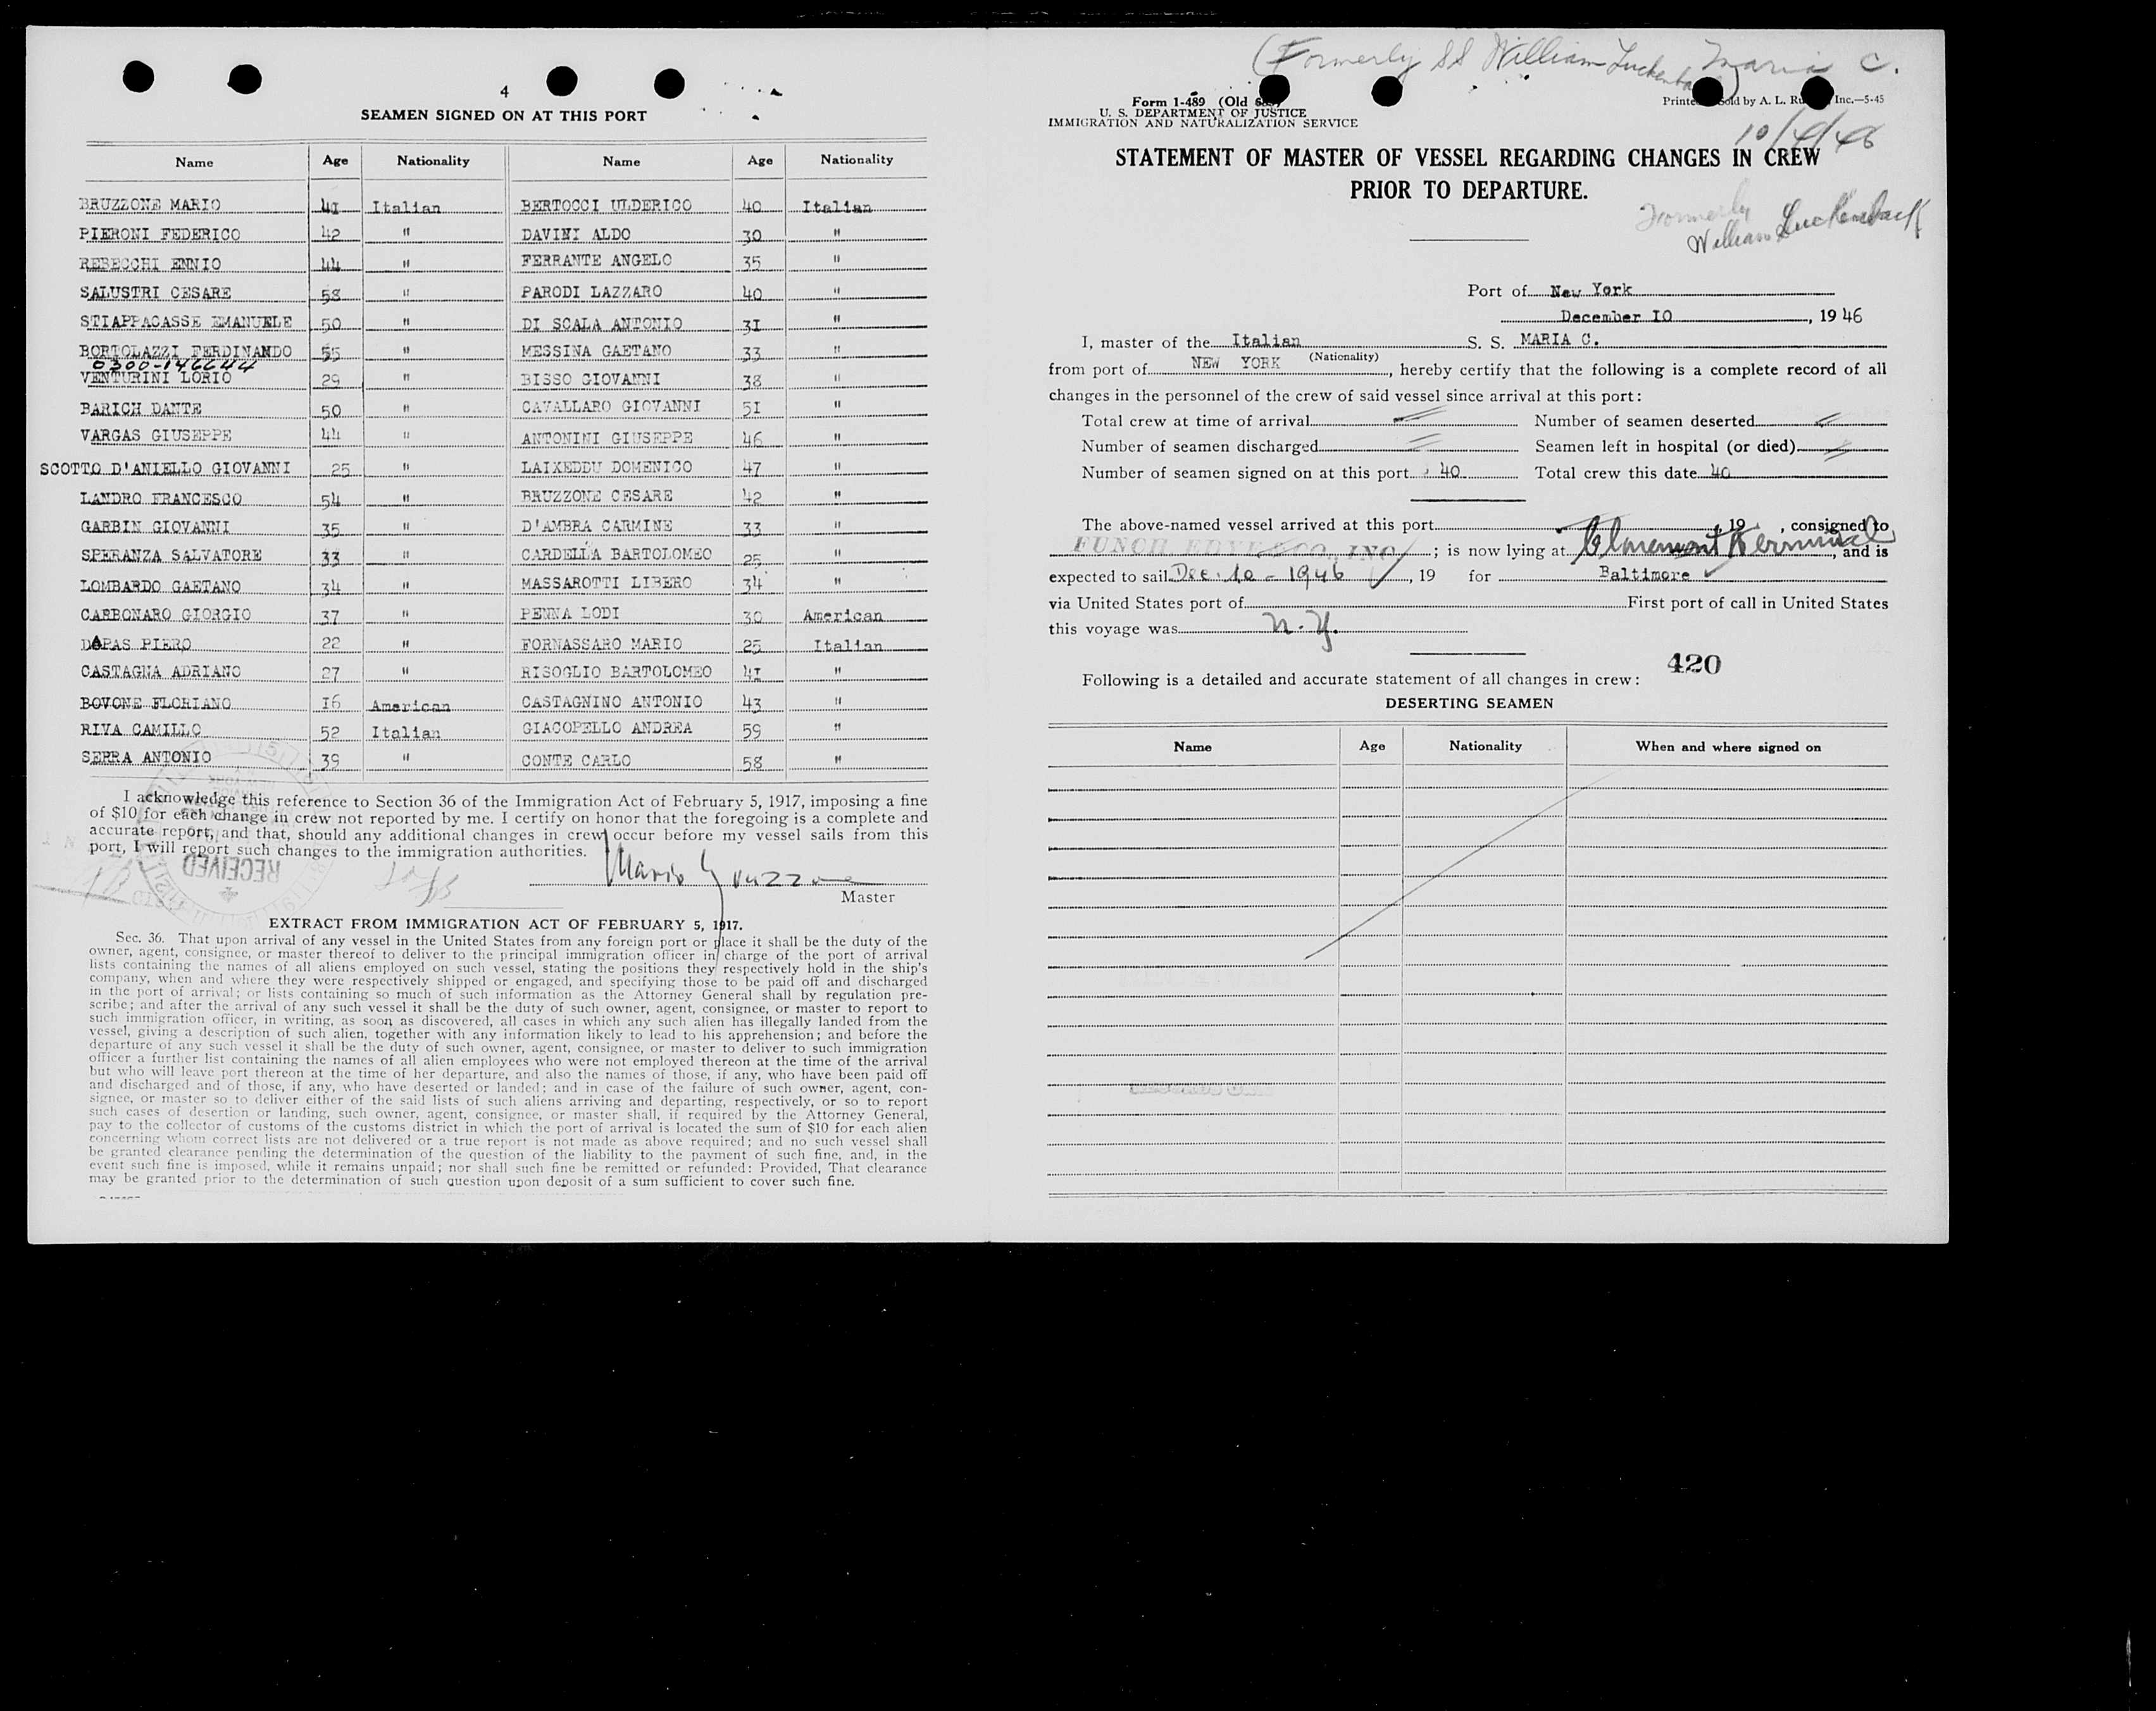 4
SEAMEN SIGNED ON AT THIS PORT
Name Age Nationality Name Age Nationality
BRUZZONE MARIO 4I Italian BERTOCCI ULDERICO 40 Italian
PIERONI FEDERICO 42 " DAVINI ALDO 30 "
REBECCHI ENNIO 44 " FERRANTE ANGELO 35 "
SALUSTRI CESARE 58 " PARODI LAZZARO 40 "
STIAPPACASSE EMANUELE 50 " DI SCALA ANTONIO 3I "
BORTOLAZZI FERDINANDO 55 " MESSINA GAETANO 33 "
0300-146644
VENTURINI LORIO 29 " BISSO GIOVANNI 38 "
BARICH DANTE 50 " CAVALLARO GIOVANNI 5I "
VARGAS GIUSEPPE 44 " ANTONINI GIUSEPPE 46 "
SCOTTO D'ANIELLO GIOVANNI 25 " LAIXEDDU DOMENICO 47 "
LANDRO FRANCESCO 54 " BRUZZONE CESARE 42 "
GARBIN GIOVANNI 35 " D'AMBRA CARMINE 33 "
SPERANZA SALVATORE 33 " CARDELLA BARTOLOMEO 25 "
LOMBARDO GAETANO 34 " MASSAROTTI LIBERO 34 "
CARBONARO GIORGIO 37 " PENNA LODI 30 American
DAPAS PIERO 22 " FORNASSARO MARIO 25 Italian
CASTAGNA ADRIANO 27 " RISOGLIO BARTOLOMEO 4I "
BOVONE FLORIANO I6 American CASTAGNINO ANTONIO 43 "
RIVA CAMILLO 52 Italian GIACOPELLO ANDREA 59 "
SERRA ANTONIO 39 " CONTE CARLO 58 "
I acknowledge this reference to Section 36 of the Immigration Act of February 5, 1917, imposing a fine
of $10 for each change in crew not reported by me. I certify on honor that the foregoing is a complete and
accurate report, and that, should any additional changes in crew occur before my vessel sails from this
port, I will report such changes to the immigration authorities.
RECEIVED
Mario Bruzzone
Master
EXTRACT FROM IMMIGRATION ACT OF FEBRUARY 5, 1917.
Sec. 36. That upon arrival of any vessel in the United States from any foreign port or place it shall be the duty of the
owner, agent, consignee, or master thereof to deliver to the principal immigration officer in charge of the port of arrival
lists containing the names of all aliens employed on such vessel, stating the positions they respectively hold in the ship's
company, when and where they were respectively shipped or engaged, and specifying those to be paid off and discharged
in the port of arrival; or lists containing so much of such information as the Attorney General shall by regulation pre-
scribe; and after the arrival of any such vessel it shall be the duty of such owner, agent, consignee, or master to report to
such immigration officer, in writing, as soon as discovered, all cases in which any such alien has illegally landed from the
vessel, giving a description of such alien, together with any information likely to lead to his apprehension; and before the
departure of any such vessel it shall be the duty of such owner, agent, consignee, or master to deliver to such immigration
officer a further list containing the names of all alien employees who were not employed thereon at the time of the arrival
but who will leave port thereon at the time of her departure, and also the names of those, if any, who have been paid off
and discharged and of those, if any, who have deserted or landed; and in case of the failure of such owner, agent, con-
signee, or master so to deliver either of the said lists of such aliens arriving and departing, respectively, or so to report
such cases of desertion or landing, such owner, agent, consignee, or master shall, if required by the Attorney General,
pay to the collector of customs of the customs district in which the port of arrival is located the sum of $10 for each alien
concerning whom correct lists are not delivered or a true report is not made as above required; and no such vessel shall
be granted clearance pending the determination of the question of the liability to the payment of such fine, and, in the
event such fine is imposed, while it remains unpaid; nor shall such fine be remitted or refunded: Provided, That clearance
may be granted prior to the determination of such question upon deposit of a sum sufficient to cover such fine.
(Formerly SS William Luckenbach) Maria C.
Form 1-489 (Old
U. S. DEPARTMENT OF JUSTICE
IMMIGRATION AND NATURALIZATION SERVICE
Sold by A. L. Inc.—5-45
10/4/46
STATEMENT OF MASTER OF VESSEL REGARDING CHANGES IN CREW
PRIOR TO DEPARTURE.
Formerly
William Luckenbach
Port of New York
December I0, 19 46
I, master of the Italian S. S. MARIA C.
(Nationality)
from port of NEW YORK, hereby certify that the following is a complete record of all
changes in the personnel of the crew of said vessel since arrival at this port:
Total crew at time of arrival Number of seamen deserted
Number of seamen discharged Seamen left in hospital (or died)
Number of seamen signed on at this port 40 Total crew this date 40
The above-named vessel arrived at this port, 19 , consigned to
FUNCH EDYE & CO, INC; is now lying at Claremont Terminal, and is
expected to sail Dec. 10 - 1946, 19 for Baltimore
via United States port of First port of call in United States
this voyage was N.Y.
420
Following is a detailed and accurate statement of all changes in crew:
DESERTING SEAMEN
Name Age Nationality When and where signed on